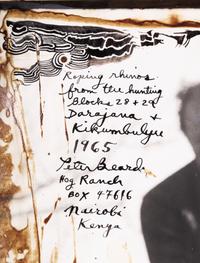 Roping rhinos
from the hunting
Blocks 28 + 29
Darajana +
Kikumbulyu
1965
Peter Beard
Hog Ranch
BOX 47616
Nairobi
Kenya